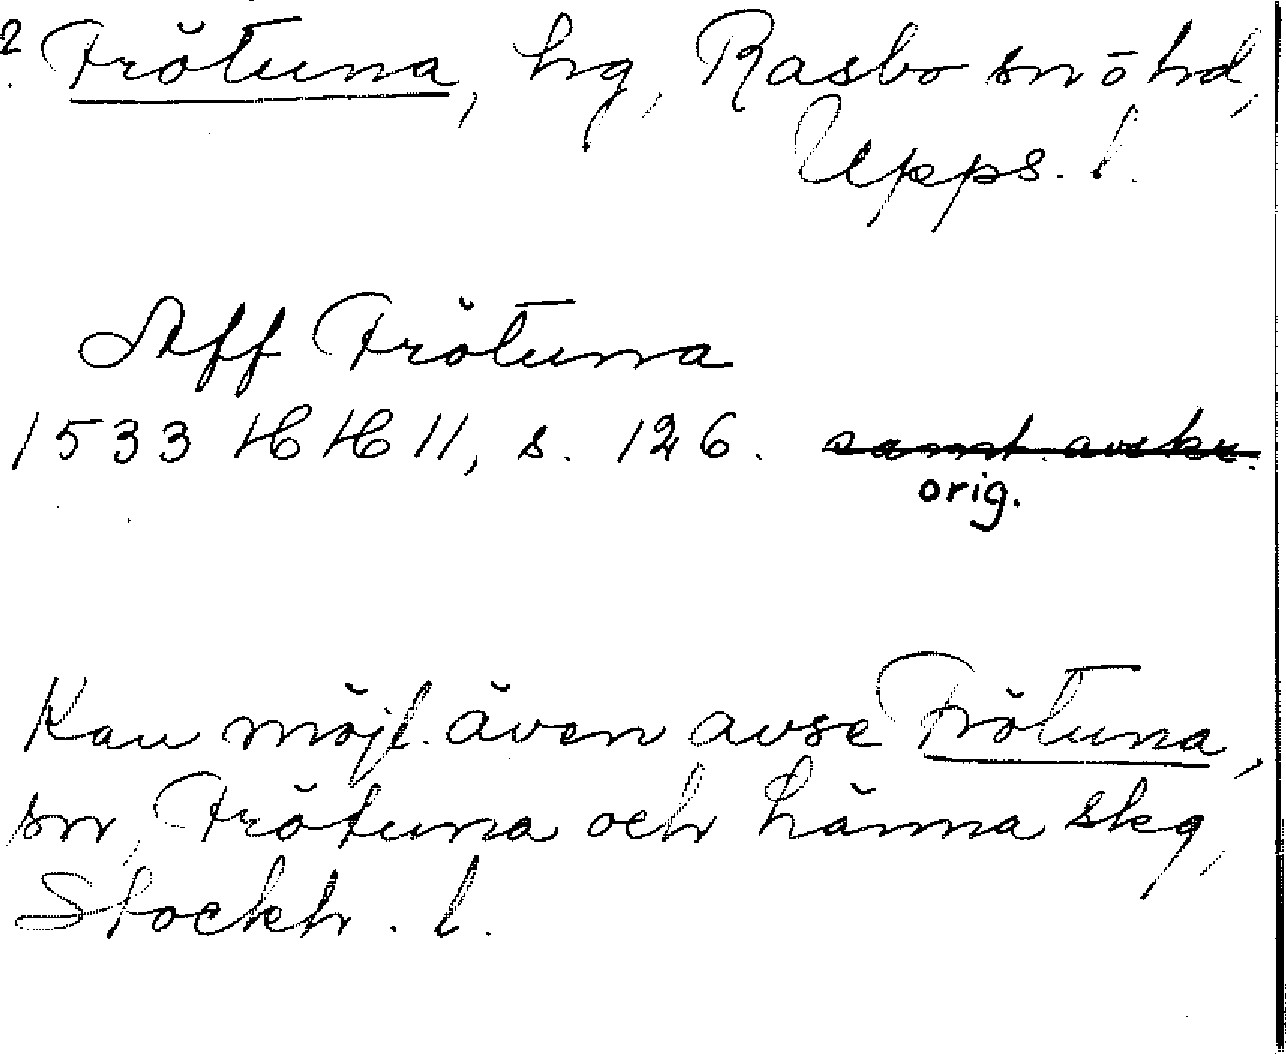 ? Frötuna, hg, Rasbo sn o hd,
Upps. l.
Aff Frötuna
1533 HH 11, s. 126. samt. avskr.
orig.
Kan möjl. även avse Frötuna,
sn, Frötuna och Länna skg,
Stockh. l.